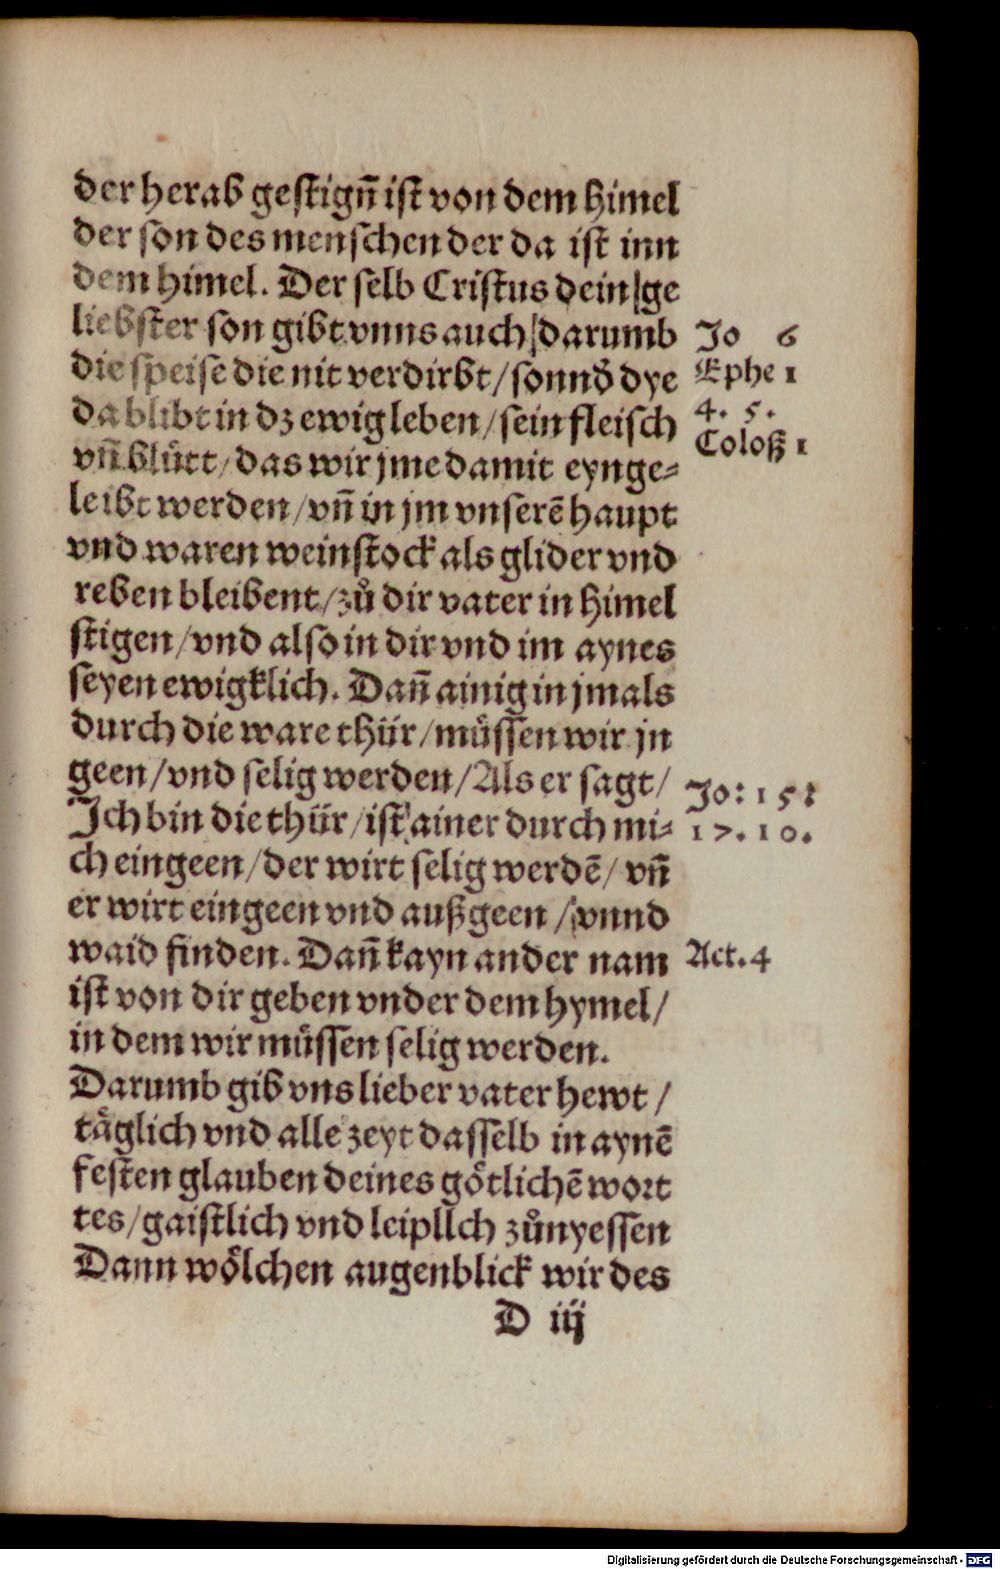 der herab gestign̄ ist von dem himel
der son des menschen der da ist inn
dem himel. Der selb Cristus dein ge
liebster son gibt vnns auch darumb
die speise die nit verdirbt/ sonnd̕ dye
da blibt in dz ewig leben/ sein fleisch
vn̄ blůtt/ das wir jme damit eynge⸗
leibt werden/ vn̄ in jm vnserē haupt
vnd waren weinstock als glider vnd
reben bleibent/ zů dir vater in himel
stigen/ vnd also in dir vnd im aynes
seyen ewigklich. Dan̄ ainig in jm als
durch die ware thür/ müssen wir jn
geen/ vnd selig werden/ Als er sagt/
Ich bin die thür/ ist ainer durch mi⸗
ch eingeen/ der wirt selig werdē/ vn̄
er wirt eingeen vnd außgeen/ vnnd
waid finden. Dan̄ kayn ander nam
ist von dir geben vnder dem hymel/
in dem wir müssen selig werden.
Darumb gib vns lieber vater hewt/
täglich vnd alle zeyt dasselb in aynē
festen glauben deines götlichē wort
tes/ gaistlich vnd leipllch zůnyessen
Dann wölchen augenblick wir des
D iij
Jo 6
Ephe 1
4. 5.
Coloß 1
Jo: 15:
17. 10.
Act. 4
Digitalisierung gefördert durch die Deutsche Forschungsgemeinschaft - DFG